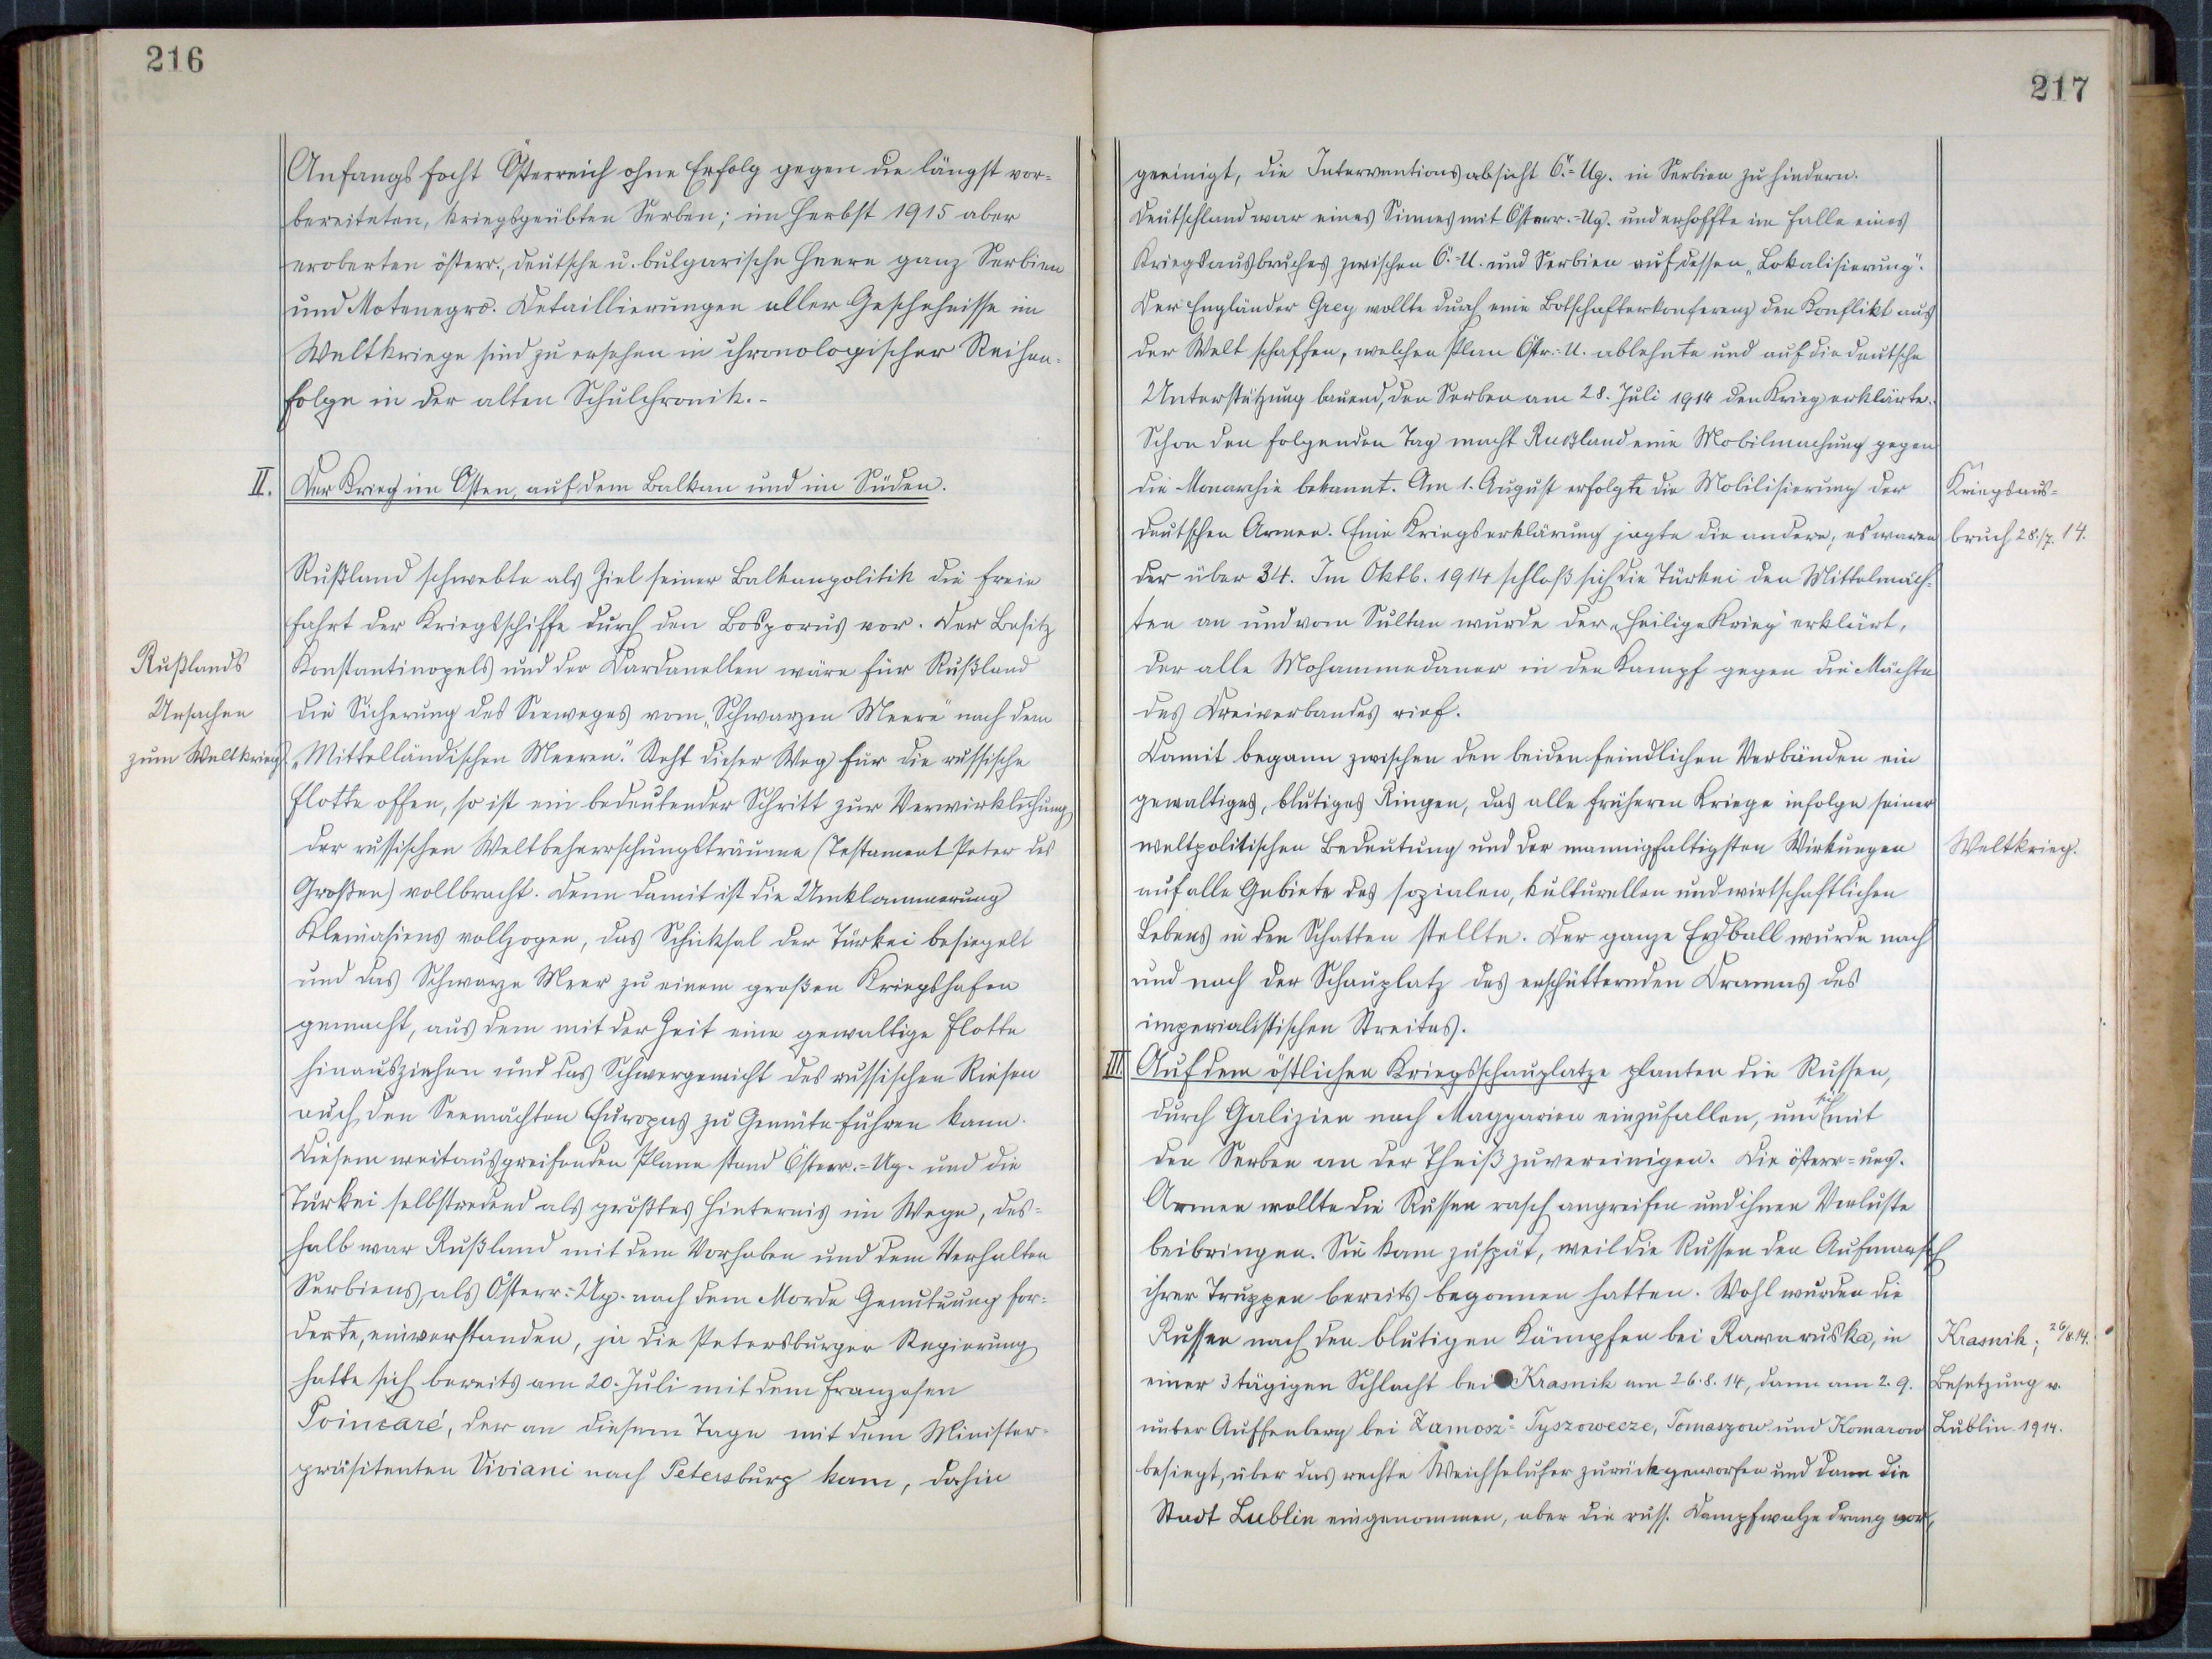 216
Anfangs focht Österreich ohne Erfolg gegen die längst vor-
bereiteten, kriegsgeübten Serben; im Herbst 1915 aber
eroberten österr., deutsche u. bulgarische Heere ganz Serbien
und Motenegro. Detaillierungen aller Geschehnisse im
Weltkriege sind zu ersehen in chronologischer Reihen-
folge in der alten Schulchronik.-
II. Der Krieg im Osten, auf dem Balkan und im Süden.
Rußland schwebte als Ziel seiner Balkanpolitik die freie
Fahrt der Kriegsschiffe durch den Bosporus vor. Der Besitz
Konstantinopels und der Dardanellen wäre für Rußland
die Sicherung des Seeweges vom „Schwarzen Meere" nach dem
„Mittelländischen Meeren." Steht dieser Weg für die russische
Flotte offen, so ist ein bedeutender Schritt zur Verwirklichung
der russischen Weltbeherrschungsträume (Testament Peter des
Großen) vollbracht. Denn damit ist die Umklammerung
Kleinasiens vollzogen, das Schicksal der Türkei besiegelt
und das Schwarze Meer zu einem großen Kriegshafen
gemacht, aus dem mit der Zeit eine gewaltige Flotte
hinausziehen und das Schwergewicht des russischen Riesen
auch den Seemächten Europas zu Gemüte führen kann.
Diesem weitausgreifenden Plane stand Österr.=Ug. und die
Türkei selbstredend als größtes Hinternis im Wege, des-
halb war Rußland mit dem Vorhaben und dem Verhalten
Serbiens, als Österr.=Ug. nach dem Morde Genutuung for-
derte, einverstanden, ja die Petersburger Regierung
hatte sich bereits am 20. Juli mit dem Franzosen
Poincaré, der an diesem Tage mit dem Minister-
präsitenten Viviani nach Petersburg kam, dahin
Rußlands
Ursachen
zum Weltkrieg.
217
geeinigt, die Interventionsabsicht Ö.=Ug. in Serbien zu hindern.
Deutschland war eines Sinnes mit Österr.=Ug. und erhoffte im Falle eines
Kriegsausbruches zwischen Ö.=U. und Serbien auf dessen „Lokalisierung".
Der Engländer Grey wollte durch eine Botschafterkonferenz den Konflikt aus
der Welt schaffen, welchen Plan Östr.=U. ablehnte und auf die deutsche
Unterstützung bauend, den Serben am 28. Juli 1914 den Krieg erklärte.
Schon den folgenden Tag macht Rußland eine Mobilmachung gegen
die Monarchie bekannt. Am 1. August erfolgte die Mobilisierung der
deutschen Armee. Eine Kriegserklärung jagte die andere; es waren
der über 34. Im Oktb. 1914 schloß sich die Türkei den Mittelmäch-
ten an und vom Sultan wurde der „Heilige Krieg" erklärt,
der alle Mohammedaner in den Kampf gegen die Mächte
des Dreiverbandes rief.
Damit begann zwischen den beiden feindlichen Verbänden ein
gewaltiges, blutiges Ringen, das alle früheren Kriege infolge seiner
weltpolitischen Bedeutung und der mannigfaltigsten Wirkungen
auf alle Gebiete des sozialen, kulturellen und wirtschaftlichen
Lebens in den Schatten stellte. Der ganze Erdball wurde nach
und nach der Schauplatz des erschütternden Dramas des
imperialistischen Streites.
III. Auf dem östlichen Kriegsschauplatze planten die Russen,
durch Galizien nach Magyarien einzufallen, um sich mit
den Serben an der Theiß zuvereinigen. Die österr=ung.
Armee wollte die Russen rasch angreifen und ihnen Verluste
beibringen. Sie kam zuspät, weil die Russen den Aufmarsch
ihrer Truppen bereits begonnen hatten. Wohl wurden die
Russen nach den blutigen Kämpfen bei Rawaruska, in
einer 3 tägigen Schlacht bei Krasnik am 26.8.14, dann am 2.9.
unter Auffenberg bei Zamosz= Tyszowecze, Tomaszow und Komarow
besiegt, über das rechte Weichselufer zurückgeworfen und dann die
Stadt Lublin eingenommen, aber die russ. Dampfwalze drang vor,
Kriegsaus-
bruch 28./7. 14.
Weltkrieg.
Krasnik; 26/8.14.
Besetzung v.
Lublin. 1914.